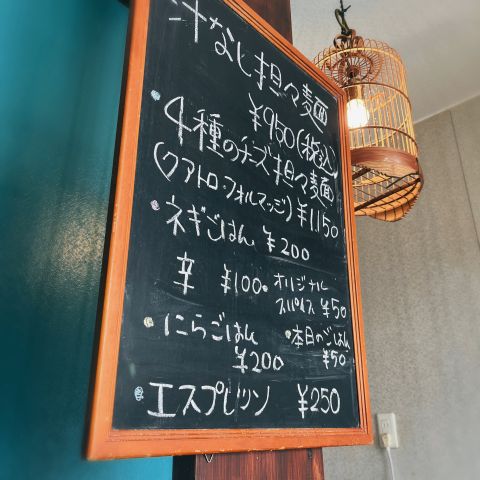 汁なし担々麺
¥950(税込)
・4種のチーズ担々麺
(クアトロ・フォルマッジ)¥1,150
・ネギごはん ¥200
辛 ¥100・オリジナル
スパイス ¥50
・にらごはん
¥200
・本日のごはん
¥50
・エスプレッソ ¥250